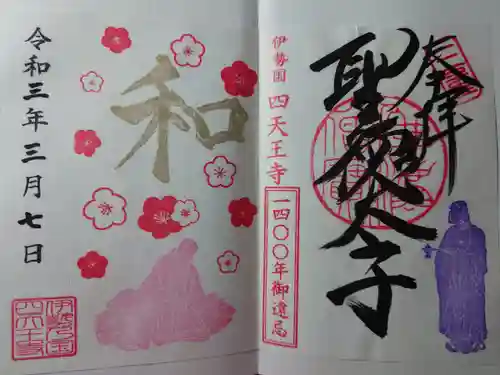 奉拝
聖徳太子
伊勢国 四天王寺
一四〇〇年御遠忌
和
令和三年三月七日
伊勢国
四天王寺